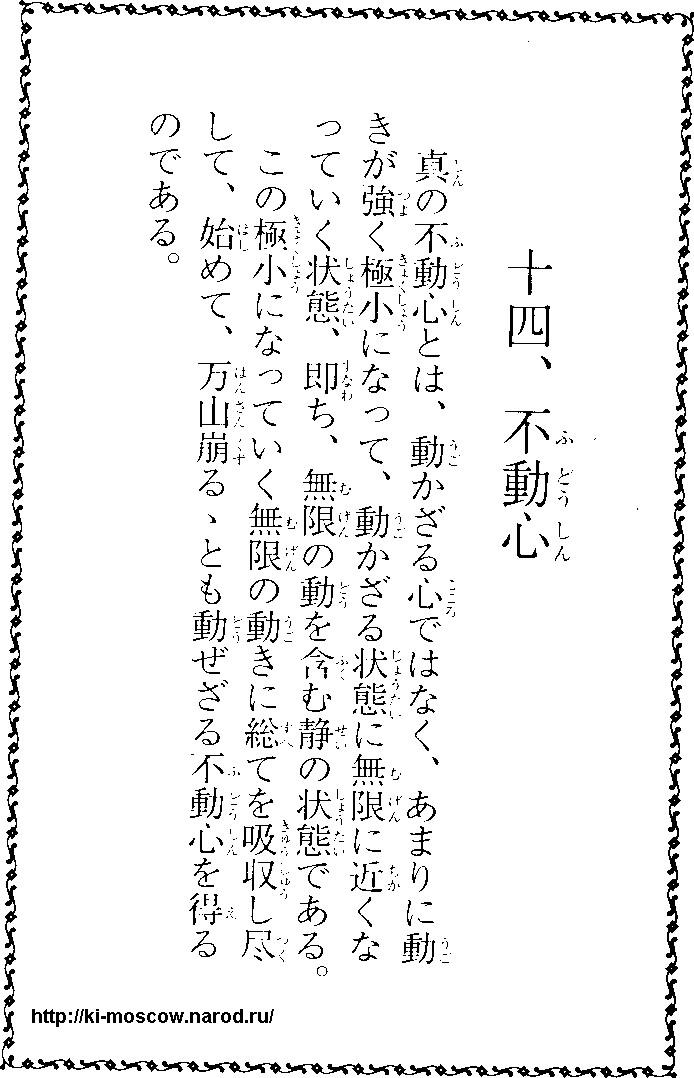 十四、不動心
真の不動心とは、動かざる心ではなく、あまりに動
きが強く極小になって、動かざる状態に無限に近くな
っていく状態、即ち、無限の動を含む静の状態である。
この極小になっていく無限の動きに総てを吸収し尽
して、始めて、万山崩るゝとも動ぜざる不動心を得る
のである。
http://ki-moscow.narod.ru/